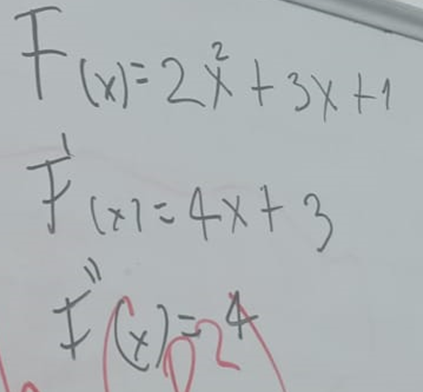 F(x)=2x²+3x+1
F'(x)=4x+3
F''(x)=4